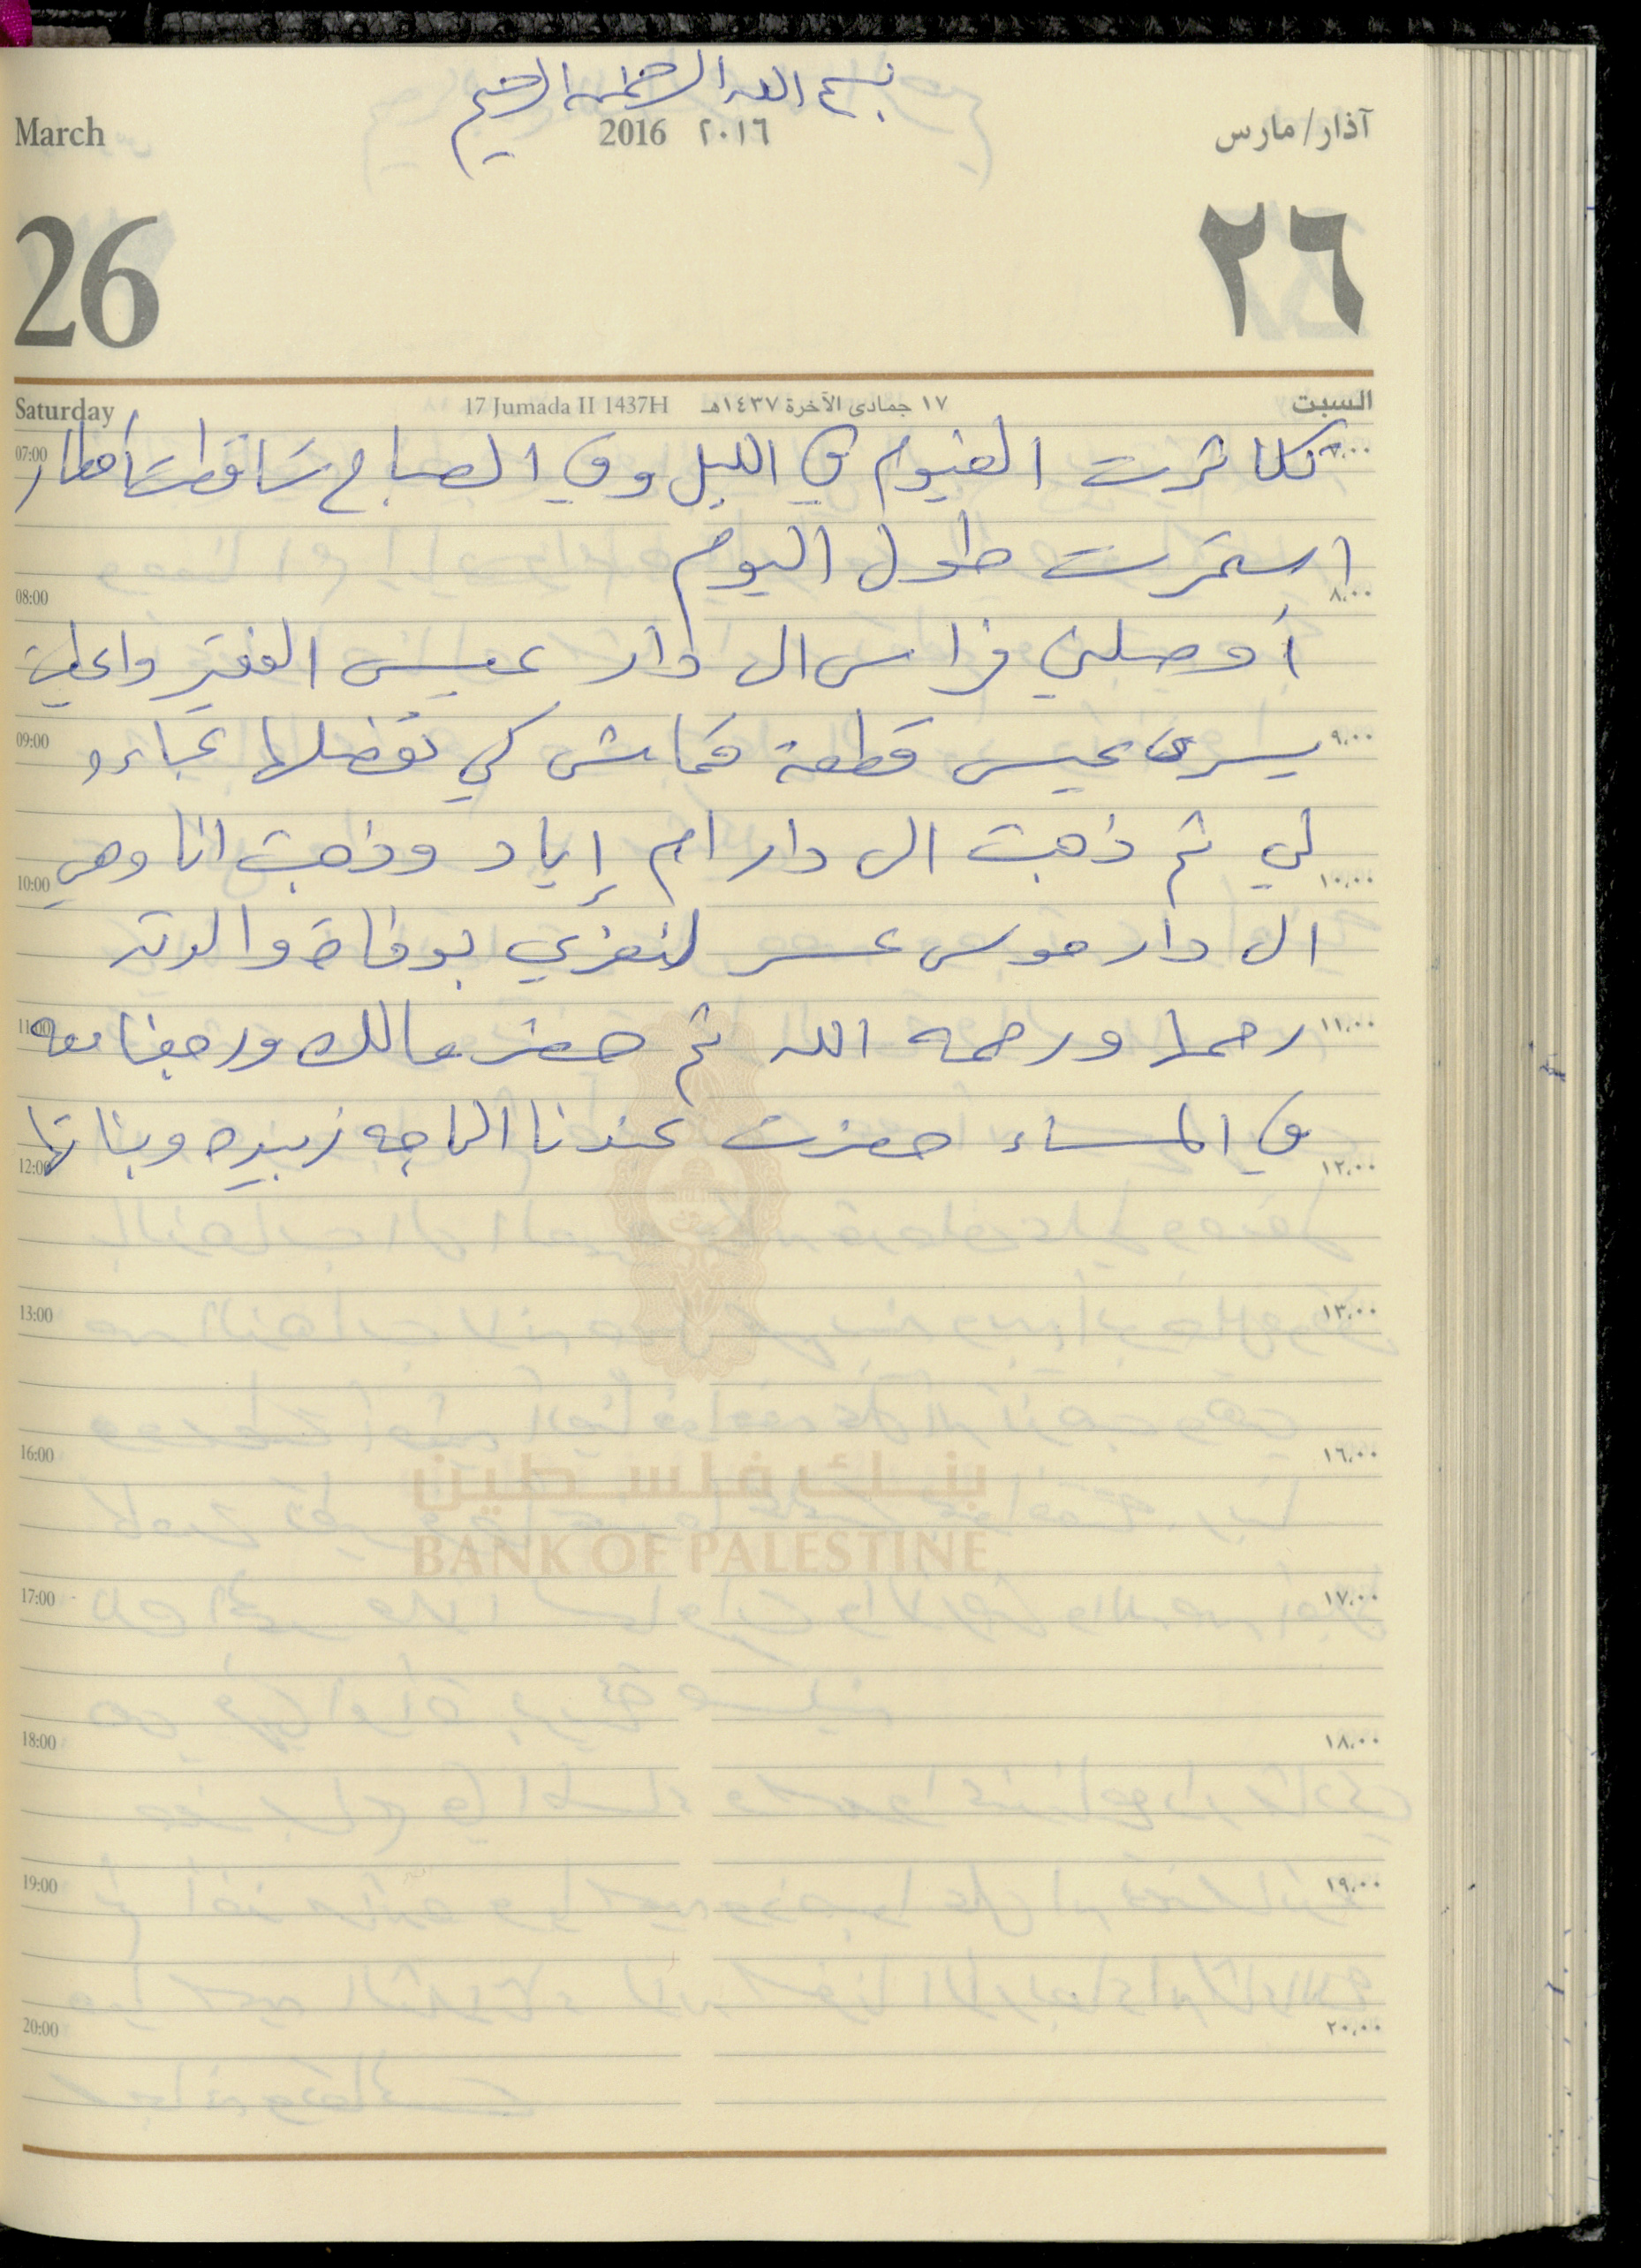 بسم الله الرحمن الرحيم
March 2016 ٢٠١٦ آذار/مارس
26 ٢٦
Saturday 17 Jumada II 1437H ١٧ جمادى الآخرة ١٤٣٧هـ السبت
07:00 تكاثرت الغيوم في الليل وفي الصباح تساقطت أمطار ٧،٠٠
استمرت طول اليوم
08:00 ٨،٠٠
أوصلني فراس الى دار عيسى الفقير واعطيت
09:00 يسرى عيسى قطعة قماش كي تفصلها عباءه ٩،٠٠
لي ثم ذهبت الى دار ام إياد وذهبت انا وهي
10:00 ١٠،٠٠
الى دار موسى عسر لنعزي بوفاة والدته
11:00 رحمها ورحمه الله ثم حضر مالك ورجعنا معه ١١،٠٠
في المساء حضرت عندنا الحاجه زبيده وبناتها
12:00 ١٢،٠٠
13:00 ١٣،٠٠
16:00 ١٦،٠٠
بنك فلسطين
BANK OF PALESTINE
17:00 ١٧،٠٠
18:00 ١٨،٠٠
19:00 ١٩،٠٠
20:00 ٢٠،٠٠